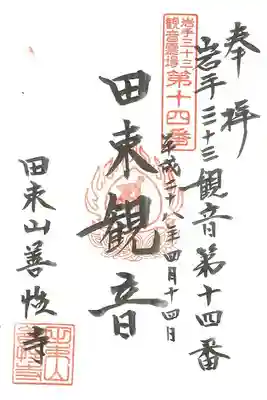 奉拝
岩手三十三観音第十四番
岩手三十三
観音霊場
第十四番
平成二十八年四月十四日
田束観音
田束山善 寺